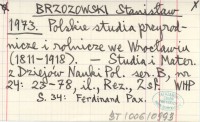 BRZOZOWSKI Stanisław
1973. Polskie studia przyrod-
nicze i rolnicze we Wrocławiu
(1811-1918). — Studia i Mater.
z Dziejów Nauki Pol. ser. B, nr
24: 23-78, il., Rez., Zsf. WHP
S. 34: Ferdinand Pax.